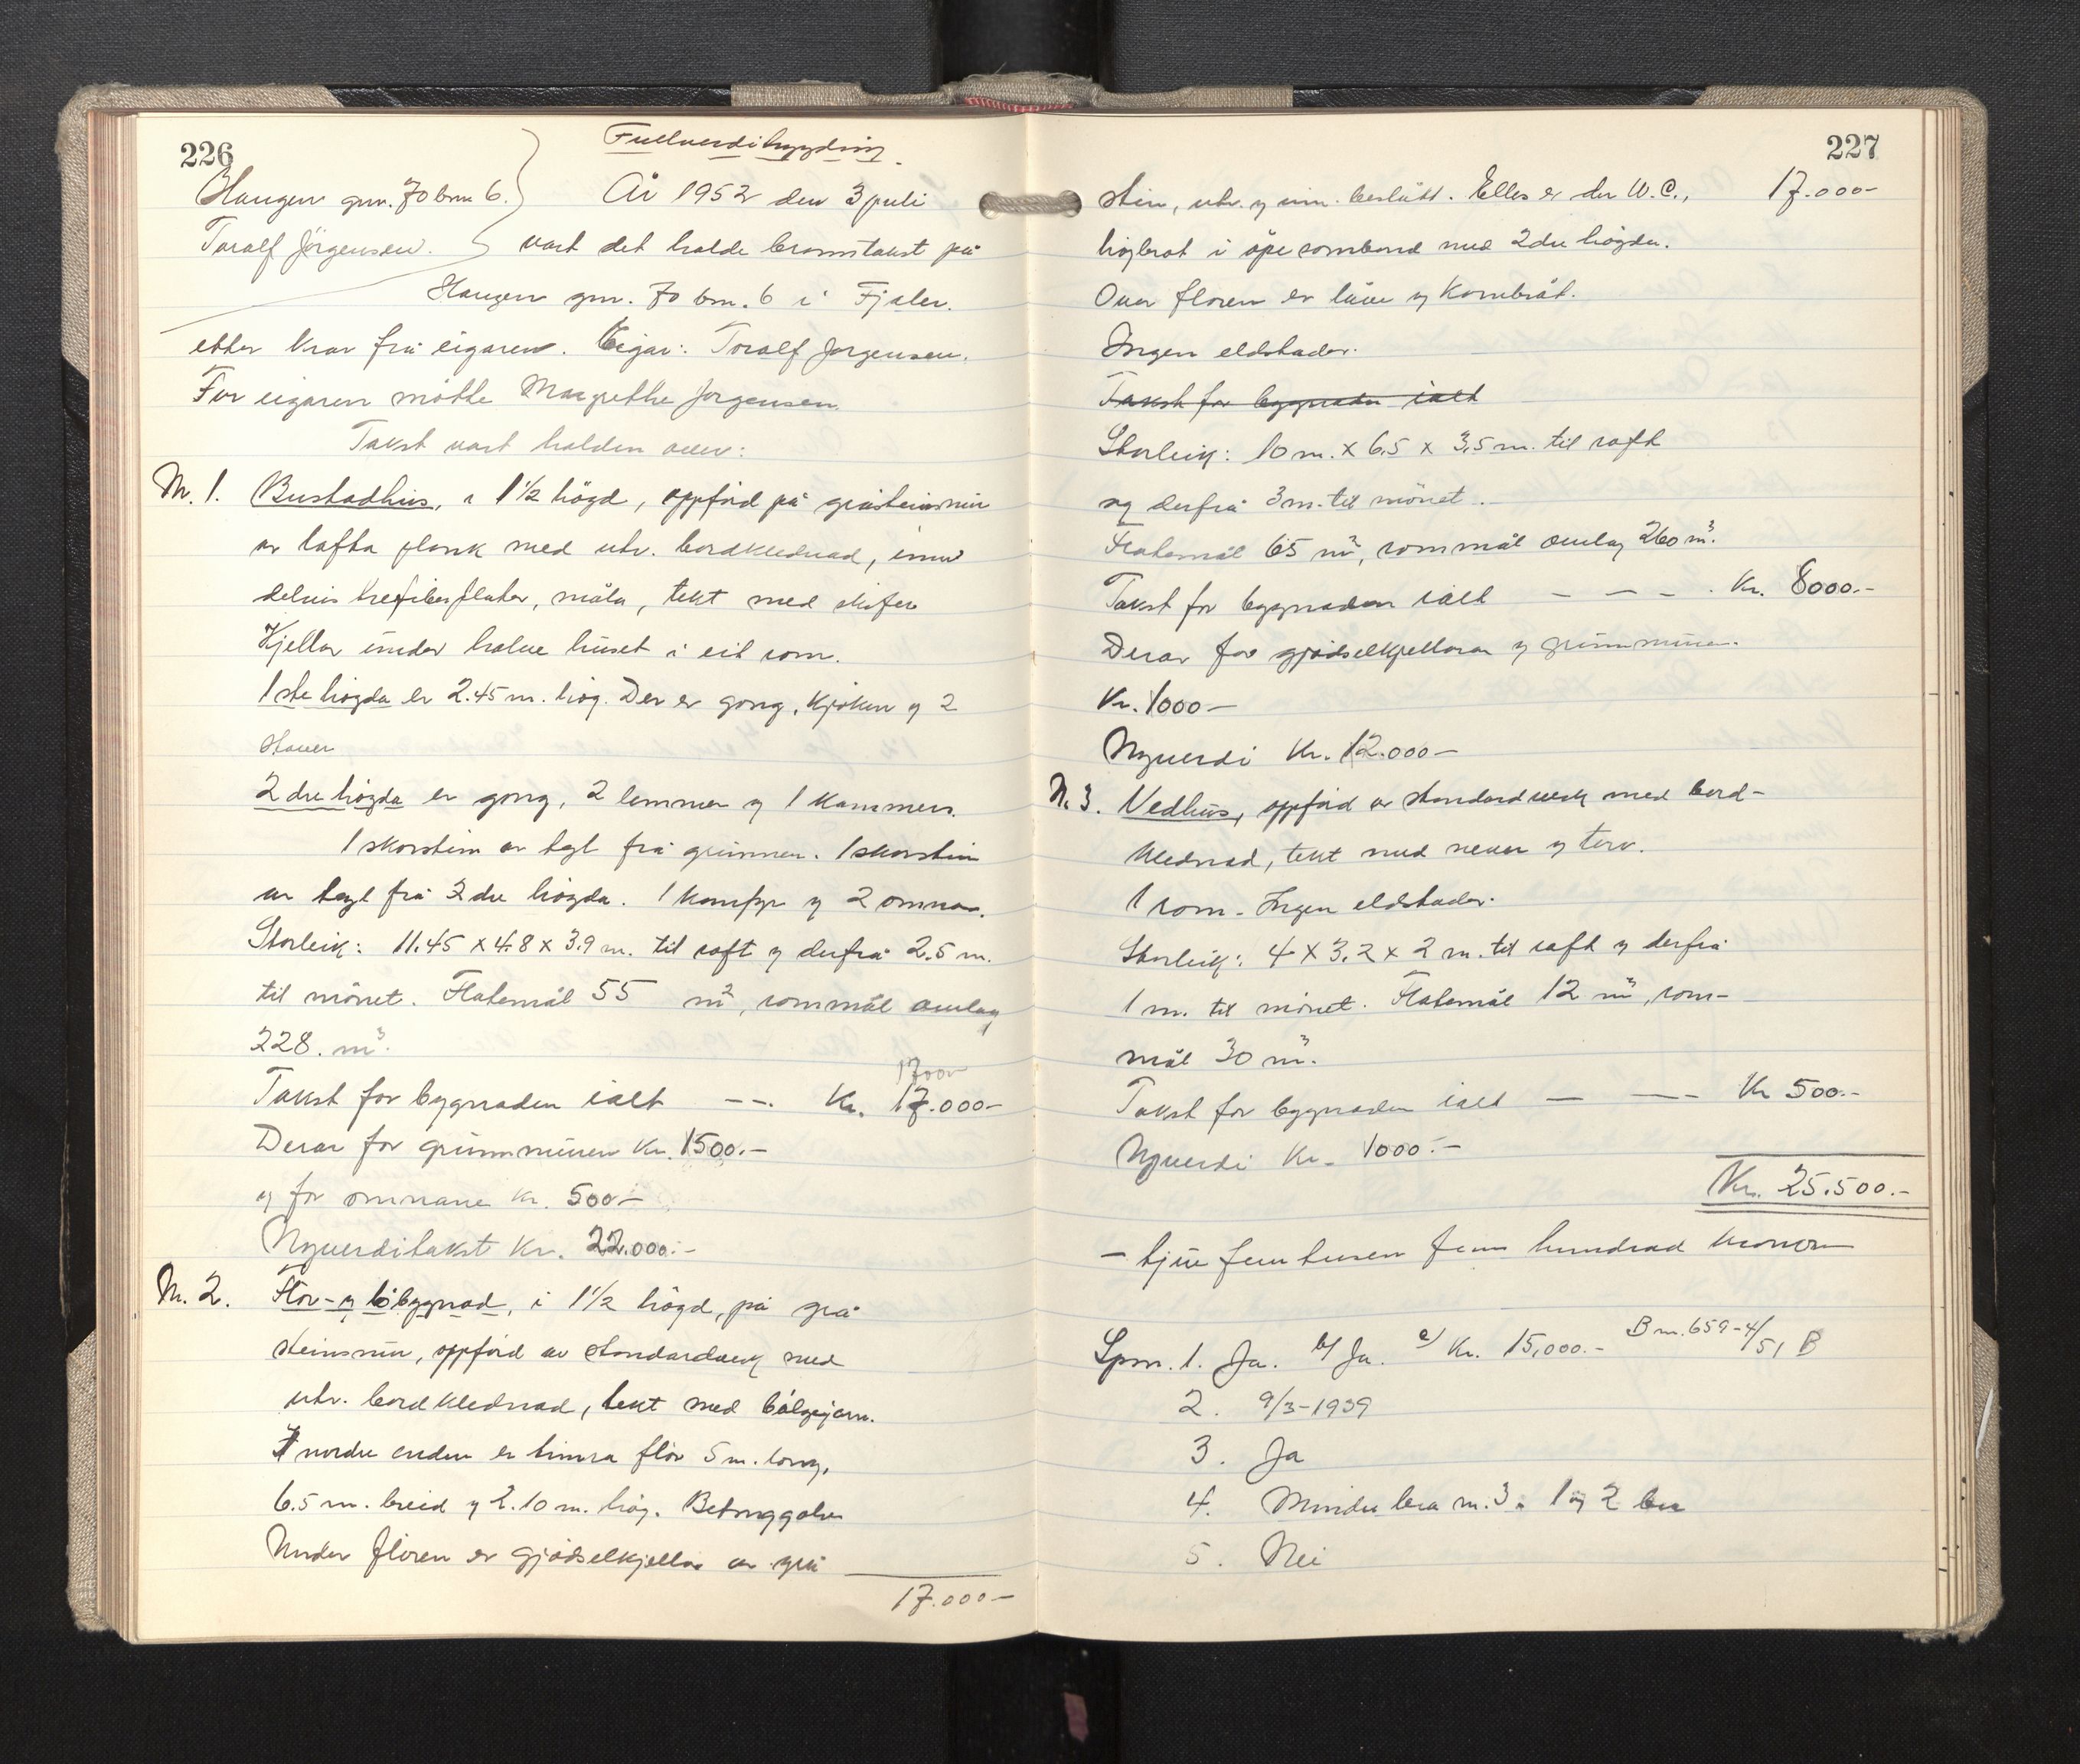 226
Fullverdibygding.
Haugen gnr. 70 bnr. 6.
Toralf Jørgensen.
År 1952 den 3 juli
vart det halde branntakst på
Haugen gnr. 70 bnr. 6 i Fjaler.
etter krav frå eigaren. Eigar: Toralf Jørgensen.
For eigaren møtte Margrethe Jørgensen.
Takst vart halden over:
Nr. 1. Bustadhus, i 1½ högd, oppförd på gråsteinsmur
av lafta plank med utv. bordklednad, innv
delvis trefiberplater, måla, tekt med skifer
Kjellar under halve huset i eit rom.
1ste högda er 2.45 m. hög. Der er gong, kjöken og 2
stover
2dre högda er gong, 2 lemmer og 1 kammers.
1 skorstein av tegl frå grunnen. 1 skorstein
av tegl frå 2dre högda. 1 komfyr og 2 omnar.
Storleik: 11.45 x 4.8 x 3.9 m. til raft og derfrå 2.5 m.
til mönet. Flatemål 55 m², rommål omlag
228. m³.
17000
Takst for bygnaden ialt – –. Kr. 17.000–
Derav for grunnmuren kr. 1500.–
og for omnane kr. 500–
Nyverditakst kr. 22.000.–
Nr. 2. Flor- og löbygnad, i 1½ högd, på grå
steinsmur, oppförd av standardverk med
utv. bordklednad, tekt med bölgjejarn.
I nordre enden er timra flor 5 m. long,
6.5 m. breid og 2.10 m. hög. Betonggolv
Under floren er gjödselkjellar av grå
17.000–
227
stein, utv. og inn. beslått. Elles er der W.C., 17.000–
högbrot i åpe samband med 2dre högda.
Over floren er låve og kornbrot.
Ingen eldstader.
Takst for bygnaden ialt
Storleik: 10 m. x 6.5 x 3.5 m. til raft
og derfrå 3 m. til mönet.
Flatemål 65 m², rommål omlag 260 m³.
Takst for bygnaden ialt – – – . Kr. 8000.–
Derav for gjödselkjellaren og grunnmuren.
Kr. 1000–
Nyverdi Kr. 12.000–
Nr. 3. Vedhus, oppförd av standardverk med bord-
klednad, tekt med never og torv.
1 rom. Ingen eldstader.
Storleik: 4 x 3.2 x 2 m. til raft og derfrå
1 m. til mönet. Flatemål 12 m², rom-
mål 30 m³.
Takst for bygnaden ialt – – – Kr 500.–
Nyverdi Kr. 1000.–
Kr. 25.500.–
– tjue fem tusen fem hundrad kronor
Spm. 1. Ja. b/ Ja. c/ Kr. 15,000.– B nr. 659-4/51 B
2. 9/3-1939
3. Ja
4. Mindre bra nr. 3. 1 og 2 bra
5. Nei